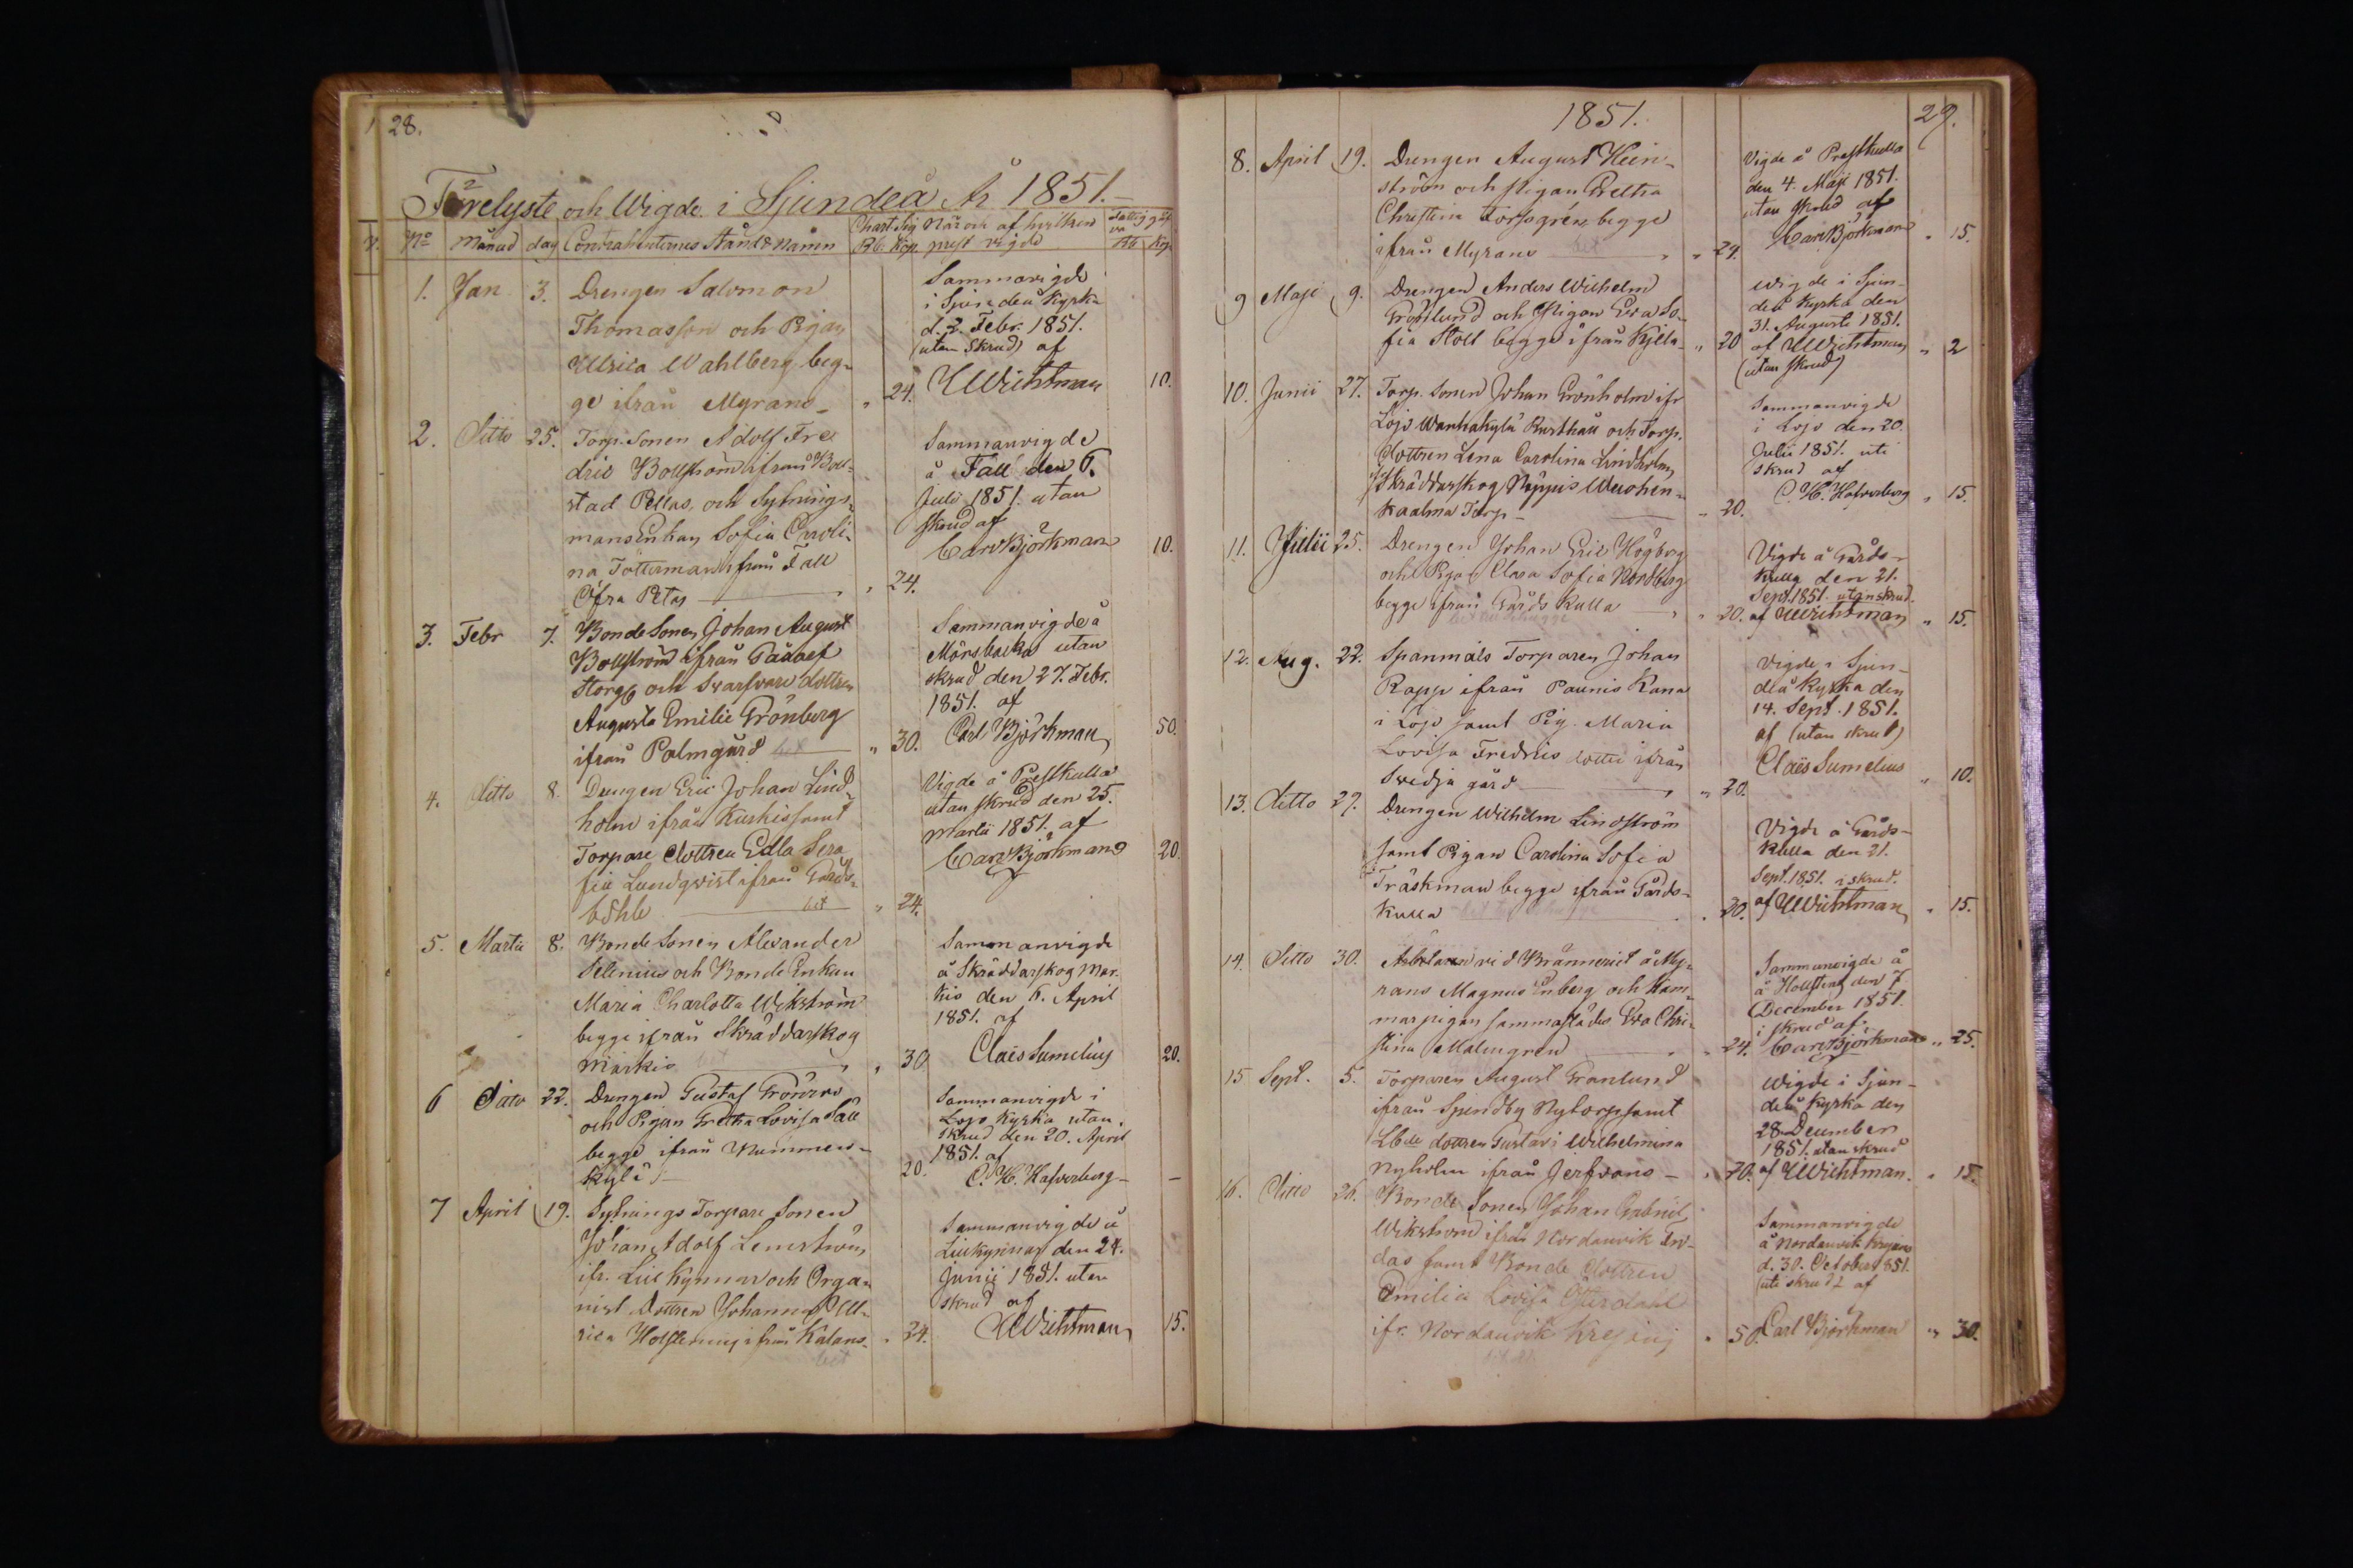 28.
Förelyste och Wigde i Sjundeå År 1851.
No Månad dag Contrahenternes Stånd & Namn Chart. Sig. När och af hvilken Fattig gåf
Rb. Kop. prest vigde va Rb Kop
1. Jan. 3. Drengen Salomon Sammanvigde
i Sjundeå Kyrka
Thomasson och Pigan d. 2. Febr. 1851.
(utan Skrud) af
Ulrica Wahlberg beg-
ge ifrån Myrans „ 24. Wichtman 10.
2. Ditto 25. Torp. Sonen Adolf Fre Sammanvigde
dric Bollström ifrån Boll- å Fall den 6.
stad Pellas, och Sytnings- Juli 1851. utan
mans Enkan Sofia Caroli- skrud af
na Tötterman ifrån Fall Carl Björkman 10.
Öfra Petas „ 24.
3. Febr 7. Bonde Sonen Johan August Sammanvigde å
Bollström ifrån Mörsbacka utan
Storg och Svarfvare dottren skrud den 27. Febr.
Augusta Emilie Grönberg 1851. af
ifrån Palmgård „ 30. Carl Björkman 50.
4. Ditto 8. Drengen Eric Johan Lind- Vigde å Prestkulla
holm ifrån Kuskis samt utan skrud den 25.
Torpare dottren Edla Sera Martii 1851. af
fia Lundqvist ifrån Gårds- Carl Björkman 20.
böhle bet „ 24.
5. Martii 8. Bonde Sonen Alexander Sammanvigde
Selenius och Bonde Enkan å Skräddarskog Mar-
Maria Charlotta Wikström kis den 6. April
begge ifrån Skräddarskog 1851. af
Markis „ 30 Claës Sumelius 20.
6 Dito 22. Drengen Gustaf Grönroos Sammanvigde i
och Pigan Gretha Lovisa Säll Lojo Kyrka utan
begge ifrån Nummen- skrud den 20. April
1851. af
kylä 20. C. H. Hafverberg —
7 April 19. Sytnings Torpare Sonen Sammanvigde å
Johan Adolf Lemström den 24.
ifr. Lill Kynnar och Orga- Junii 1851. utan
nist Dottren Johanna Ul- skrud af
rica ifrån Kalans „ 24. Wichtman 15.
bet
1851. 29.
8. April 19. Drengen August Hein- Vigde å Prestkulla
ström och Pigan Gretha den 4. Maji 1851.
Christina Forsgrén begge utan skrud af
ifrån Myrans „ 24. Carl Björkman „ 15.
9 Maji 9. Drengen Anders Wilhelm Wigde i Sjun-
Grönlund och Pigan Eva So- deå Kyrka den
31. Augusti 1851.
fia Ståll begge ifrån Kjäla „ 20 af Wichtman „ 2
(utan skrud)
10. Junii 27. Torp. Sonen Johan Grönholm ifr Sammanvigde
Lojo Wanhakylä Rusthåll och Torp. i Lojo den 20.
Dottren Lena Carolina Lindholm Julii 1851. uti
Skräddarskog Näppis Wuohen- skrud af
kaalma Torp — „ 20. C. H. Hafverberg „ 15.
11. Julii 25. Drengen Johan Eric Högberg Vigde å Gårds-
och Pigan Clara Sofia Nordberg kulla den 21.
Sept. 1851. utan skrud
begge ifrån Gårds Kulla „ 20. af Wichtman „ 15.
12. Aug. 22. Spanmåls Torparen Johan Vigde i Sjun-
Rapp ifrån Paunis Kana deå Kyrka den
i Lojo samt Pig. Maria 14. Sept. 1851.
Lovisa Fredrics dotter ifrån af (utan skrud)
Svidja gård „ 20. Claës Sumelius „ 10.
13. Ditto 29. Drengen Wilhelm Lindström Vigde å Gårds-
samt Pigan Carolina Sofia kulla den 21.
Träskman begge ifrån Gårds- Sept. 1851. i skrud.
kulla „ 20. af Wichtman „ 15.
14. Ditto 30. Arbetaren vid Bränneriet å My- Sammanvigde å
rans Magnus Enberg och Kam- å den 7
marpigan sammastädes Eva Chri- December 1851.
stina Malmgren „ 24. i skrud af. Carl Björkman „ 25.
15 Sept. 5. Torparen August Granlund Wigde i Sjun-
ifrån Spindby Nytorp samt deå Kyrka den
dottren Gustavi Wilhelmina 28 December
1851. utan skrud
Nyholm ifrån Jerfvans — „ 70. af Wichtman. „ 15.
16. Ditto 26. Bonde Sonen Johan Gabriel Sammanvigde
Wikström ifrån Nordanvik Fro- å Nordanvik Krejans
das samt Bonde Dottren d. 30. October 1851.
Emilia Lovisa Österdahl (uti skrud) af
ifr. Nordanvik „ 50. Carl Björkman „ 30.